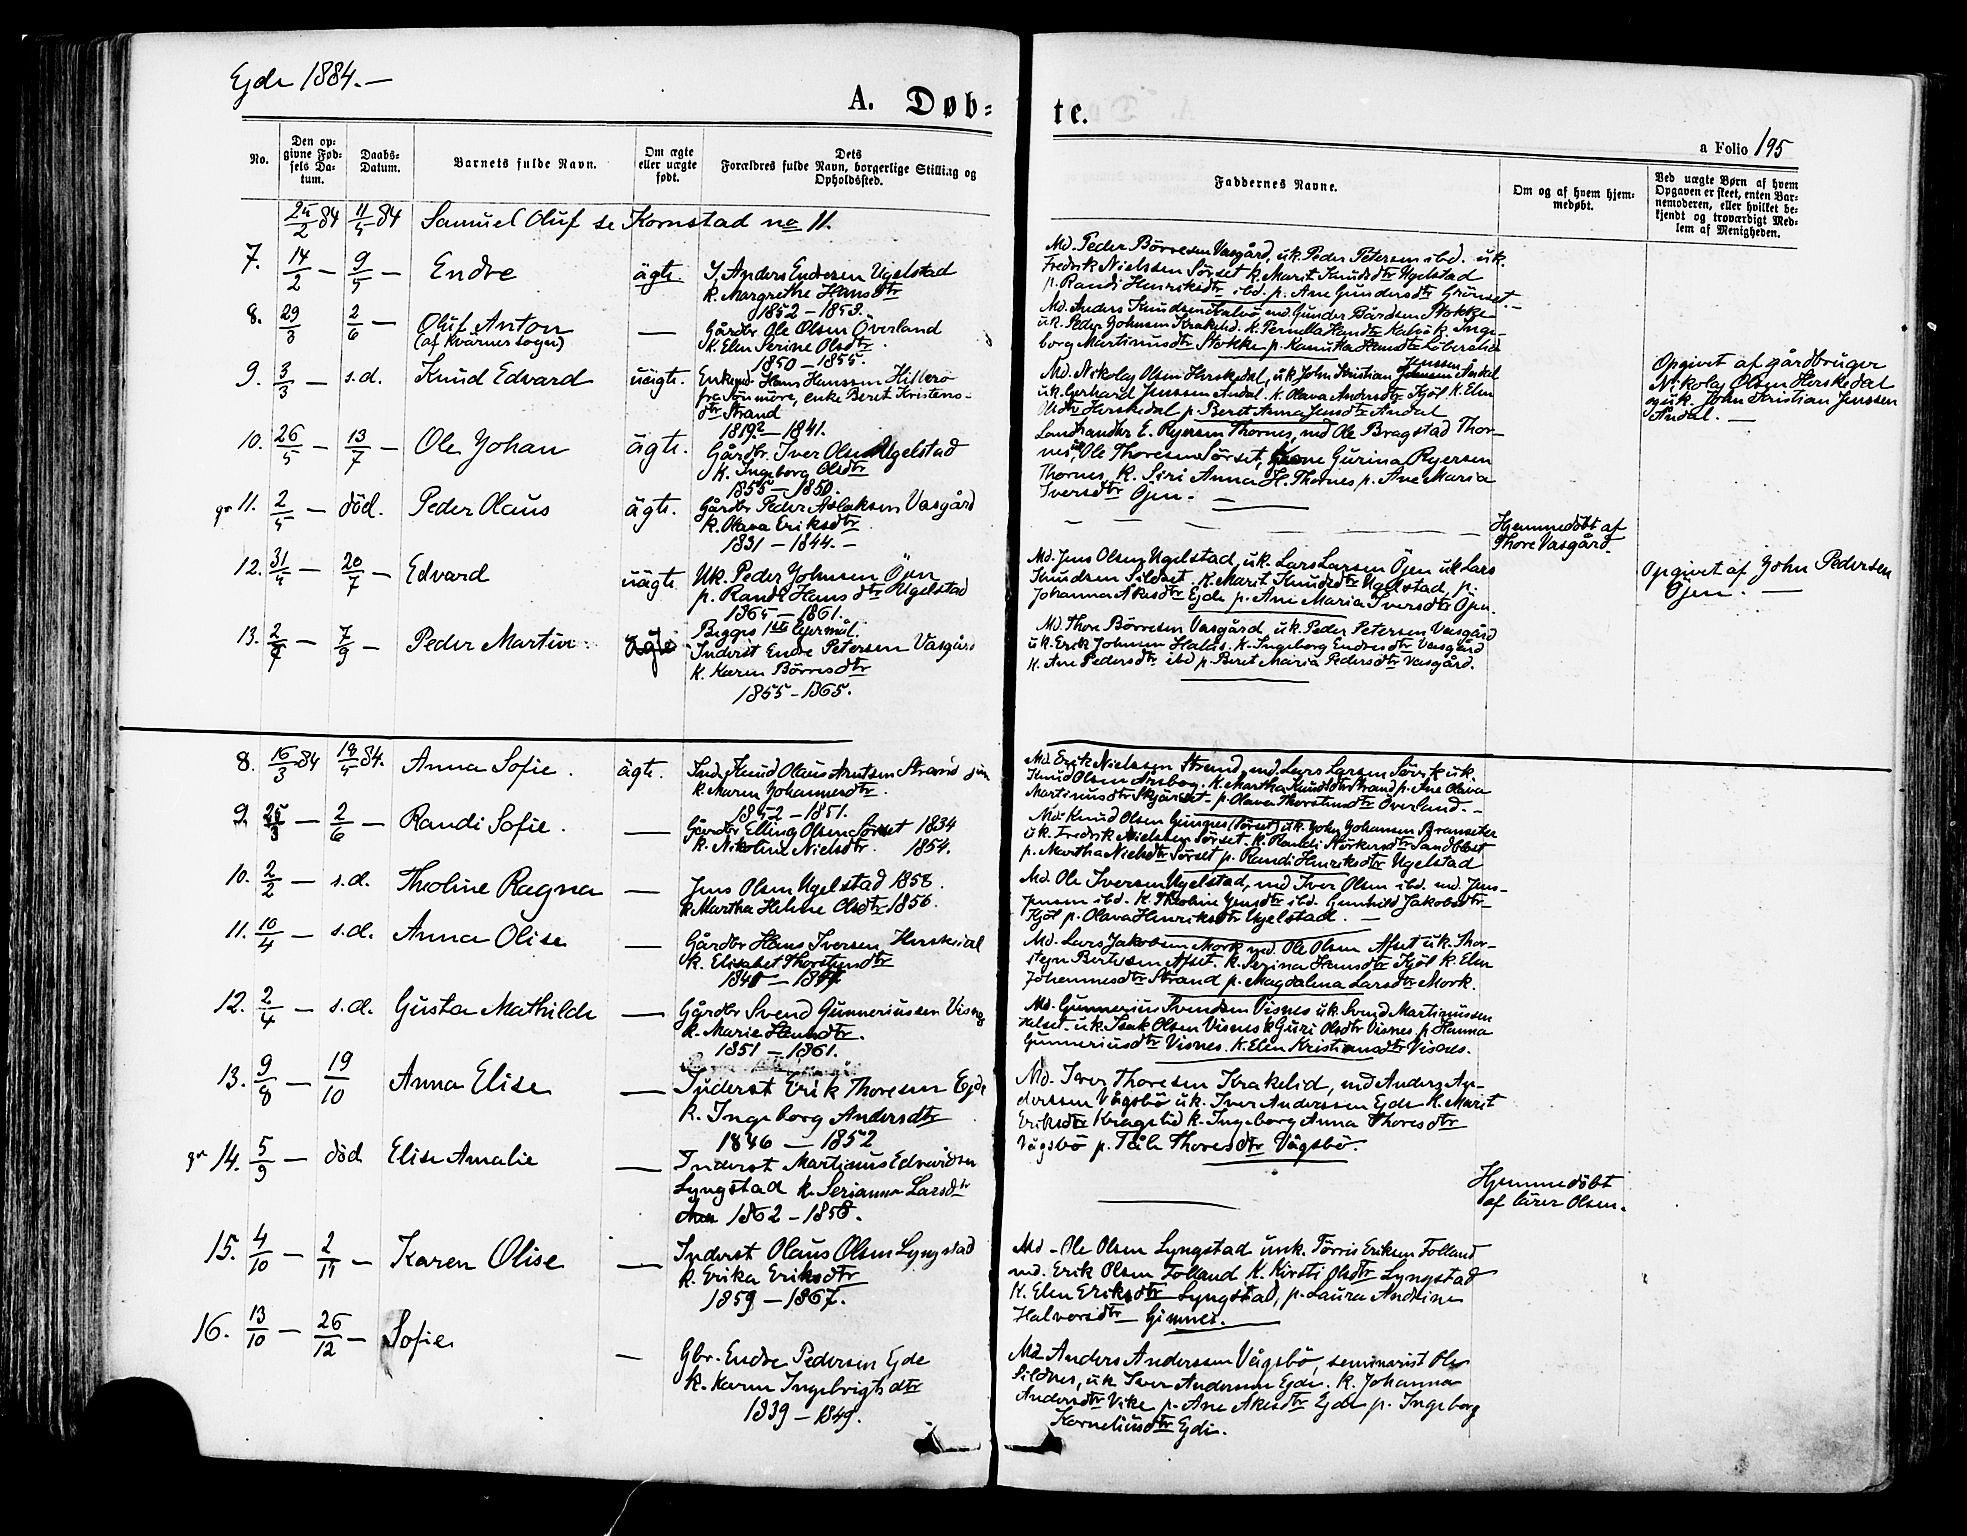 Ejde 1884.—
A. Døb-
te.
a Folio 195
No.
Den op-
givne Fød-
sels Da-
tum.
Daabs-
Datum.
Barnets fulde Navn.
Om ægte
eller uægte
født.
Dets
Forældres fulde Navn, borgerlige Stilling og
Opholdssted.
Faddernes Navne.
Om og af hvem hjem-
medøbt.
Ved uægte Børn af hvem
Opgaven er skeet, enten Bar-
nemoderen, eller hvilket be-
kjendt og troværdigt Med-
lem af Menigheden.
84 84 Samuel Oluf se Kornstad no 11.
7. 14/2 — 9/ — Endre ägte. J. Anders Endresen Ugelstad
k. Margrethe Hansdtr
1852 – 1853.
Md. Peder Börresen Vasgård, uk. Peder Petersen ibd. uk.
Fredrik Nielssen Sörset k. Marit Knudsdtr Ugelstad
p. Randi Henriksdtr ibd. p. Ane Gundersdtr
8. 29/3 2/6 — Oluf Anton
(af Kvarnes sogn)
— Gårdbr Ole Olsen Överland
k. Elen Serine Olsdtr
1850 – 1855.
Md. Anders Knudsen md. Gunder Bårdsen Stokke
uk. Peder Johnsen Krakelid. k. Pernella k. Inge-
borg Martinusdtr Stokke p.
9. 3/3 — s.d. Knud Edvard uägte. Enkemd Hans Hanssen Hillerö
fra Sönmöre, enke Beret Kristens-
dtr Strand
1819? – 1841.
Md. Nikolay Olsen Herskedal, uk John Kristian Jenssen Andal
uk. Gerhard Jenssen Andal. k. Olava Andersdtr Kjöl k. Elen
Olsdtr Herskedal p. Beret Anna Jensdtr Andal
Opgivet af gårdbruger
Nikolay Olsen Herskedal
og uk. John Kristian Jenssen
Andal. —
10. 26/5 — 13/7 — Ole Johan ägte. Gårdbr. Iver Olsen Ugelstad
k. Ingeborg Olsdtr
1855 – 1850.
Landhandler E. Ryersen Thornes, md Ole Bragstad Thor-
nes, uk Ole Thoresen Sörset, Gurina Ryersen
Thornes, k. Siri Anna H. Thornes p. Ane Maria
Iversdtr Öjen. —
11. 2/5 — död. Peder Olaus ägte. Gårdbr Peder Aslaksen Vasgård
k. Olava Eriksdtr
1831 – 1844. –
Hjemmedöbt af
Thore Vasgård.
12. 31/ — 20/7 — Edvard uägte Uk. Peder Johnsen Öjen
p. Randi Hansdtr Ugelstad
1865 – 1861.
Begges 1ste lejermål.
Md. Jens Olsen Ugelstad, uk. Lars Larsen Öjen uk Lars
Knudsen Sildset. k. Marit Knudsdtr Ugelstad, p.
Johanna Åkesdtr Ejde p. Ane Maria Iversdtr Öjen.
Opgivet af John Pedersen
Öjen. —
13. 2/ — 7/9 — Peder Martin ägte Inderst Endre Petersen Vasgård
k. Karen Börresdtr
1855 – 1865.
Md. Thore Börresen Vasgård uk. Peder Petersen Vasgård
uk. Erik Johnsen Halås. k. Ingeborg Endresdtr Vasgård
k. Ane Pedersdtr ibd p. Beret Maria Pedersdtr Vasgård.
8. 16/3 84 18/ 84. Anna Sofie. ägte. Ind. Knud Olaus Arntsen Strand
k. Maren Johannesdtr.
1852 – 1851.
Md. Erik Nielssen Strand, md. Lars Larsen Sövik uk.
Knud Olsen Arsbog. k. Martha Knudsdtr Strand p. Ane Olava
Martinusdtr Skjärset – p. Olava Thorstensdtr Överland. –
9. /3 — 2/6 — Randi Sofie. — Gårdbr Elling Olsen Sörset 1834
k. Nikoline Nielsdtr. 1854.
Md. Knud Olsen Gimnes (Sörset) uk. John Johansen Bransether
uk. Fredrik Nielssen Sörset. k. Randi Sandblåst
p. Martha Nielsdtr Sörset p. Randi Henriksdtr Ugelstad
10. 2/2 — s.d. Theoline Ragna — Jens Olsen Ugelstad 1858.
k Martha Helene Olsdtr 1856.
Md. Ole Iversen Ugelstad, md Iver Olsen ibd. md. Jens
Jensen ibd. k. Theoline Jensdtr ibd. Gunhild Jakobsdtr
Kjöl p. Olava Henriksdtr Ugelstad. —
11. 10/4 — s.d. Anna Olise — Gårdbr Hans Iversen Herskedal
k. Elisabet Thorstensdtr
Md. Lars Jakobsen Mork md. Ole Olsen Afset uk. Thor-
stejn Bertesen Afset. k. Serina Hansdtr Kjöl k. Elen
Johannesdtr Strand p. Magdalena Larsdtr Mork.
12. 2/4 — s.d. Gusta Mathilde — Gårdbr Svend Gunneriussen Visnes
k. Marie Hansdtr.
1851 – 1861.
Md. Gunnerius Svendsen Visnes uk. Svend Martinussen
uk. Isak Olsen Visnes k Guri Olsdtr Visnes. p Hanna
Gunneriusdtr Visnes. k. Elen Kristiansdtr Visnes.
13. 9/8 — 19/10 Anna Elise — Inderst Erik Thoresen Ejde
k. Ingeborg Andersdtr
1846 – 1852
Md. Iver Thoresen Krakelid, md Anders An-
derssen Vågsbö uk. Iver Anderssen Ejde k. Marit
Eriksdtr k. Ingeborg Anna Thoresdtr
Vågsbö p. Thoresdtr Vågsbö.
14. 5/9 — död Elise Amalie — Inderst Martinus Edvardsen
Lyngstad k. Serianna Larsdtr
1862 – 1858.
Hjemmedöbt
af lärer Olsen.
15. 4/10 — 2/11 — Karen Olise — Inderst Olaus Olsen Lyngstad
k. Erika Eriksdtr
1859 – 1867.
Md – Ole Olsen Lyngstad unk. Törris Eriksen Folland
md. Erik Olsen Folland k. Kirsti Olsdtr Lyngstad
k. Elen Eriksdtr Lyngstad, p. Laura Andrine
Halvorsdtr Gimnes.
16. 13/10 — 26/12 — Sofie — Gbr. Endre Pedersen Ejde
k. Karen Ingebrigtsdtr
1839 – 1849.
Md Anders Anderssen Vågsbö, seminarist Ole
Sildnes, uk Iver Andersen Ejde. k. Johanna
Andersdtr Vike p. Ane Åkesdtr Ejde p. Ingeborg
Korneliusdtr Ejde.